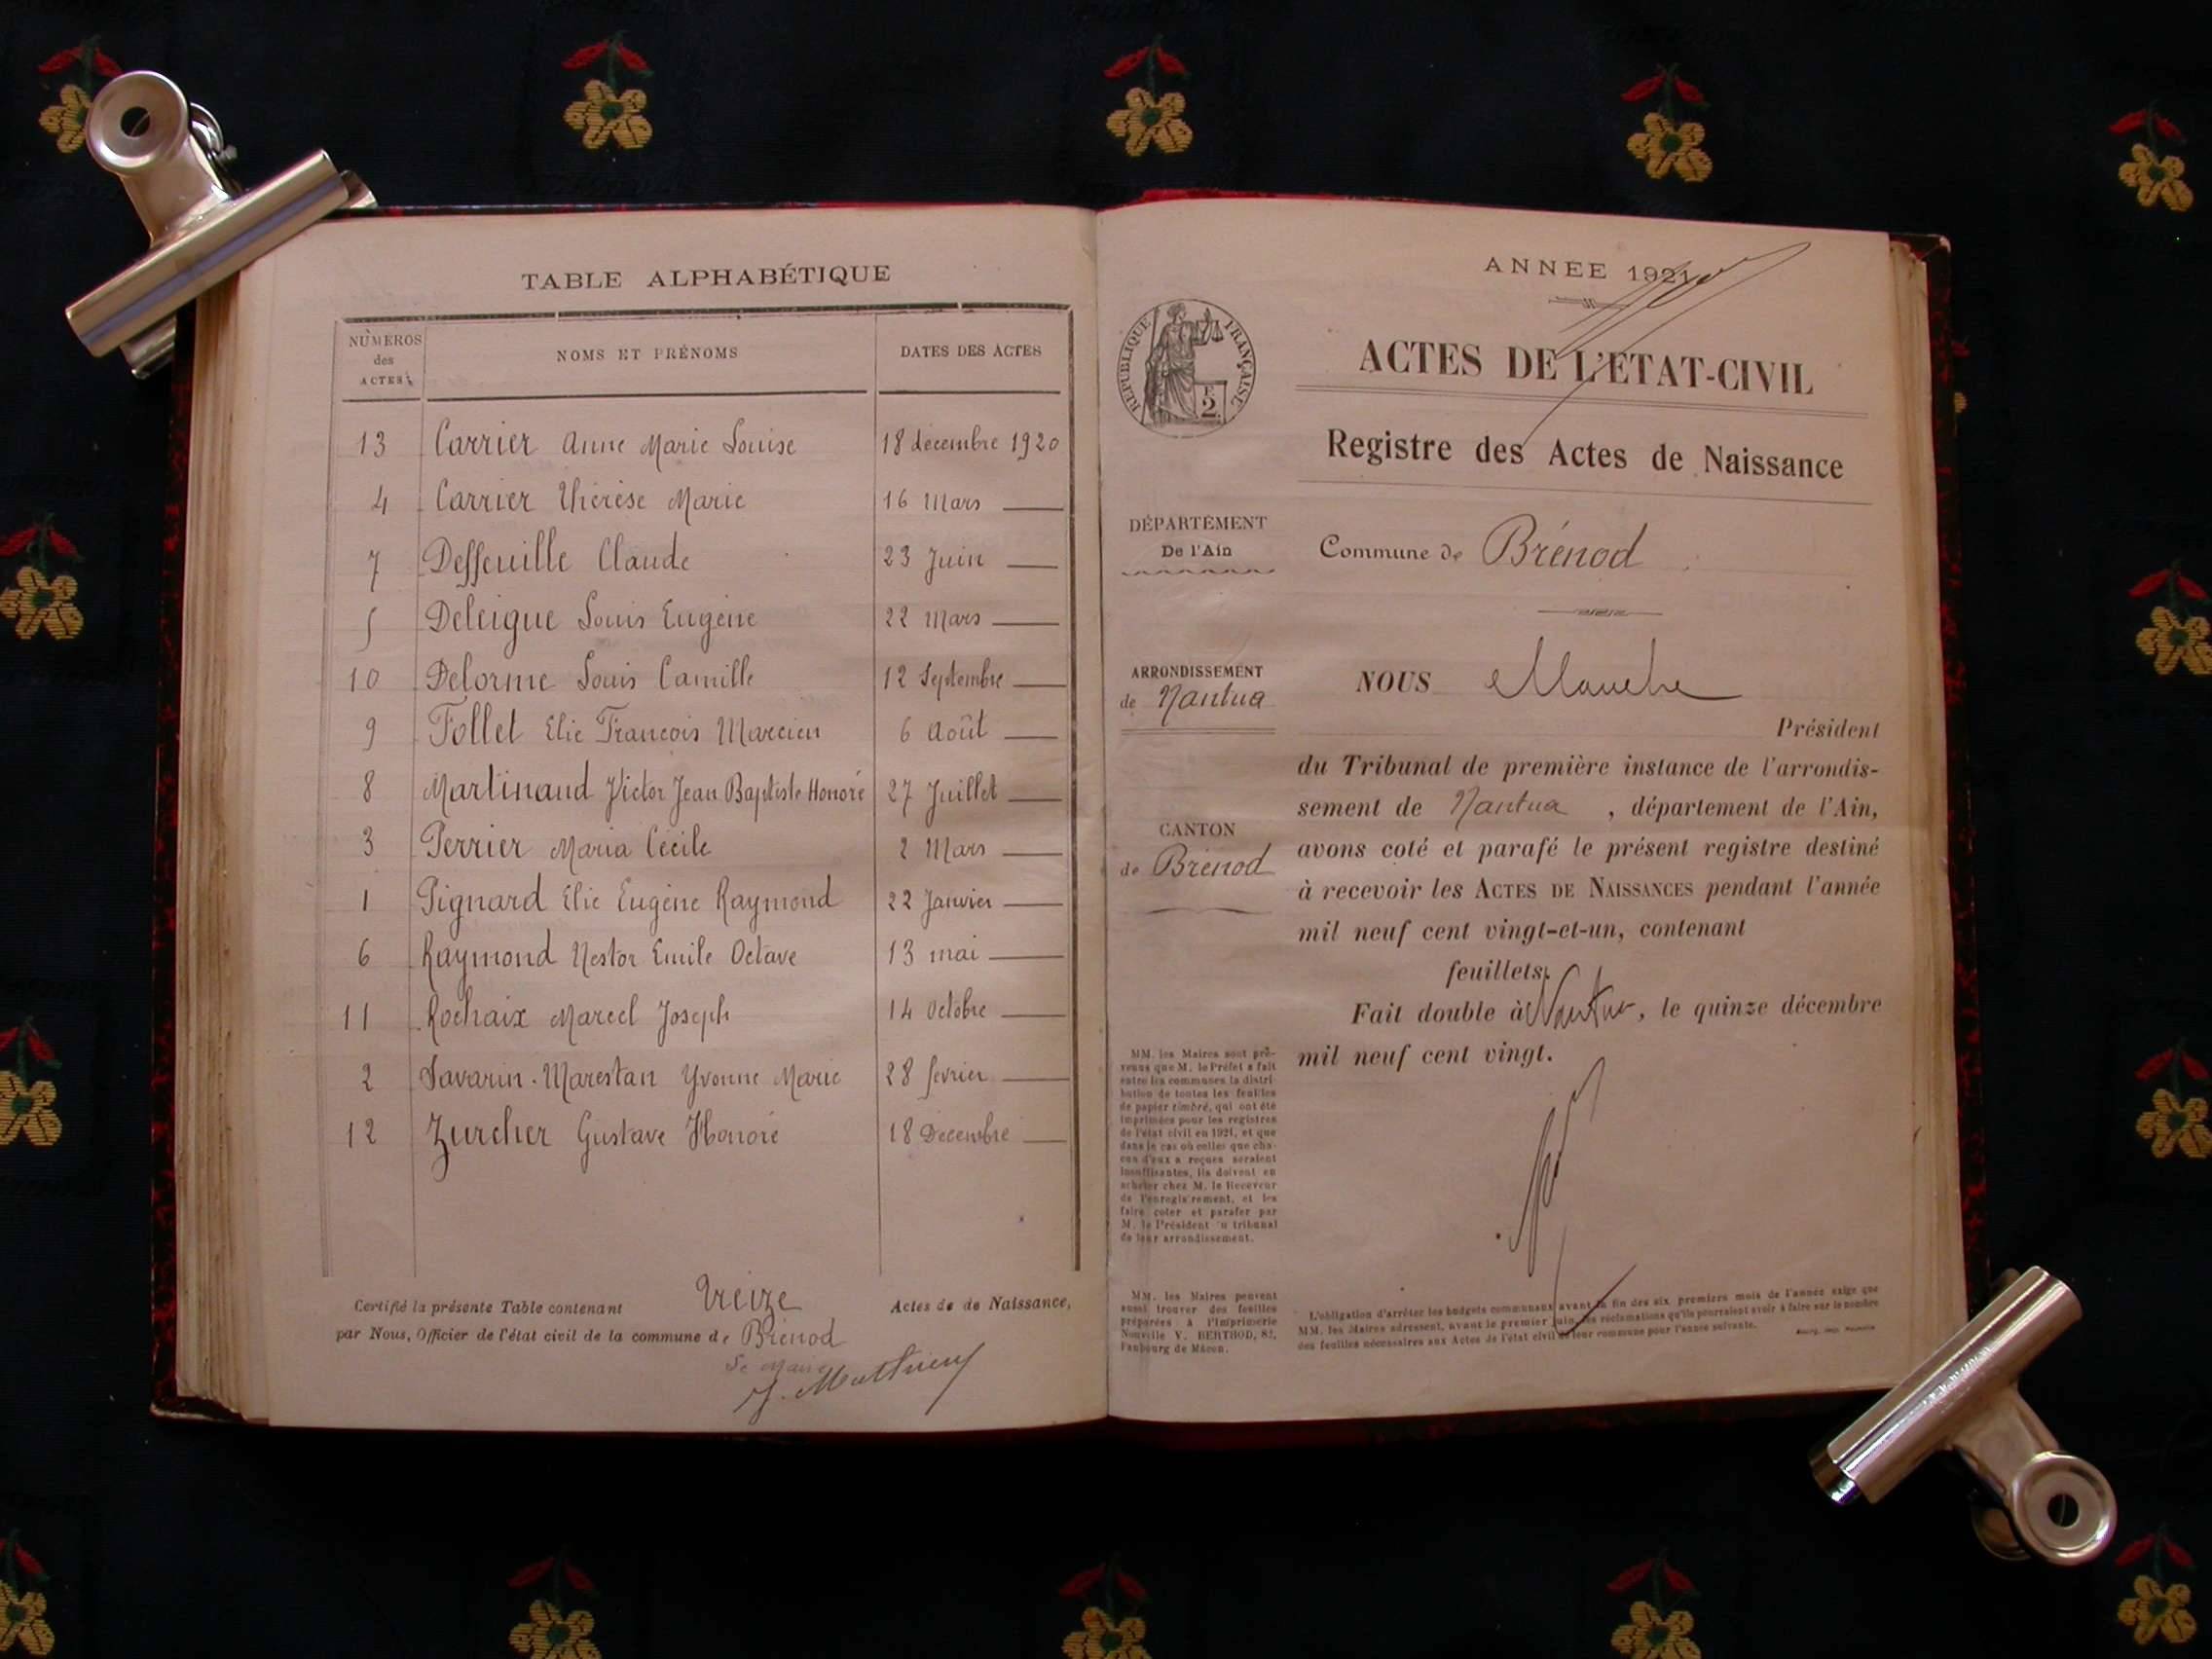 TABLE ALPHABÉTIQUE
NUMEROS des ACTES
NOMS ET PRÉNOMS
DATES DES ACTES
13 Carrier Anne Marie Louise 18 décembre 1920
4 Carrier Thérèse Marie 16 Mars
7 Deffeuille Claude 23 Juin
5 Deleigue Louis Eugène 22 Mars
10 Delorme Louis Camille 12 Septembre
9 Follet Elie François Marcien 6 Août
8 Martinaud Victor Jean Baptiste Honoré 27 Juillet
3 Perrier Maria Cécile 2 Mars
1 Pignard Elie Eugène Raymond 22 Janvier
6 Raymond Nestor Emile Octave 13 mai
11 Rochaix Marcel Joseph 14 Octobre
2 Savarin-Marestan Yvonne Marie 28 février
12 Zurcher Gustave Honoré 18 Décembre
Certifié la présente Table contenant treize Actes de de Naissance,
par Nous, Officier de l'état civil de la commune de Brénod
Le Maire
J. Mathieu
ANNEE 1921
RÉPUBLIQUE FRANÇAISE
F. 2.
ACTES DE L'ETAT-CIVIL
Registre des Actes de Naissance
DÉPARTEMENT
De l'Ain
Commune de Brénod
ARRONDISSEMENT
de Nantua
CANTON
de Brénod
NOUS
Président
du Tribunal de première instance de l'arrondis-
sement de Nantua, département de l'Ain,
avons coté et parafé le présent registre destiné
à recevoir les ACTES DE NAISSANCES pendant l'année
mil neuf cent vingt-et-un, contenant
feuillets.
Fait double à Nantua, le quinze décembre
mil neuf cent vingt.
MM. les Maires sont pré-
venus que M. le Préfet a fait
entre les communes la distri-
bution de toutes les feuilles
de papier timbré, qui ont été
imprimées pour les registres
de l'état civil en 1921, et que
dans le cas où celles que cha-
cun d'eux a reçues seraient
insuffisantes, ils doivent en
acheter chez M. le Receveur
de l'enregis rement, et les
faire coter et parafer par
M. le Président u tribunal
de leur arrondissement.
MM. les Maires peuvent
aussi trouver des feuilles
préparées à l'Imprimerie
Nouvelle V. BERTHOD, 82,
Faubourg de Mâcon.
L'obligation d'arrêter les budgets communaux avant la fin des six premiers mois de l'année exige que
MM. les Maires adressent, avant le premier juin, les réclamations qu'ils pourraient avoir à faire sur le nombre
des feuilles nécessaires aux Actes de l'état civil de leur commune pour l'année suivante.